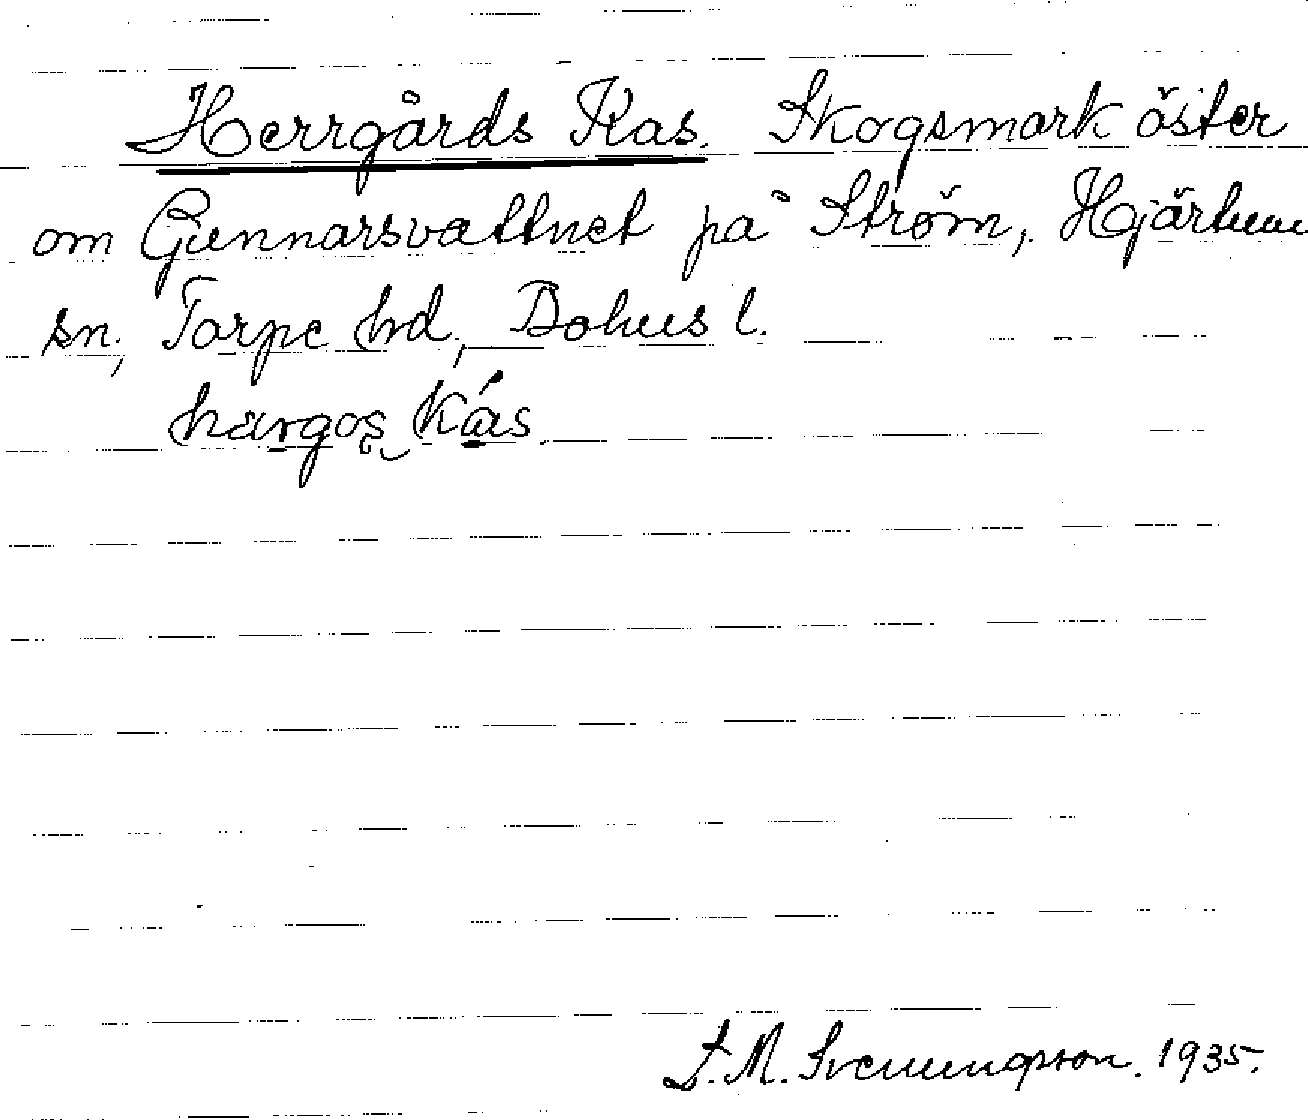 Herrgårds Kas. Skogsmark öster
om Gunnarsvattnet på Ström, Hjärtum
sn, Torpe hd, Bohus l.
hargos Kás.
S. M. Svenungsson. 1935.